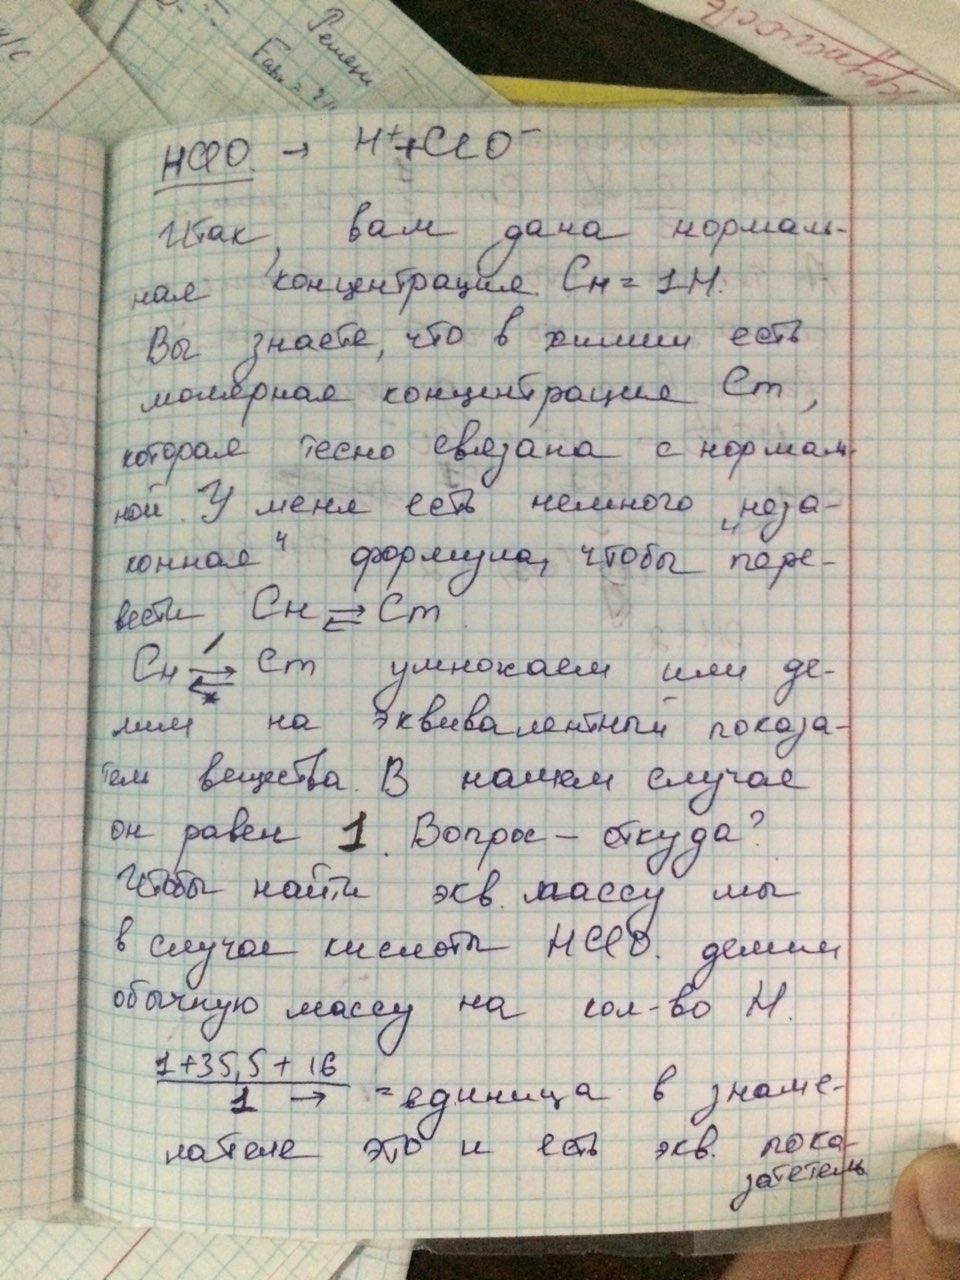 Решени
н/с
Красность
HClO. → H⁺+ClO⁻
Итак, вам дана нормаль-
ная концентрация. Сн = 1Н.
Вы знаете, что в химии есть
молярная концентрация Cm,
которая тесно связана с нормаль-
ной. У меня есть немного „неза-
конная“ формула, чтобы пере-
вести Сн ⇄ Cm.
Сн ⇄ Cm умножаем или де-
лим на эквивалентный показа-
тель вещества. В нашем случае
он равен 1. Вопрос – откуда?
Чтобы найти экв. массу мы
в случае кислоты HClO. делим
обычную массу на кол-во H.
1+35,5+16
1 → = единица в знаме-
нателе это и есть экв. пока-
зететель